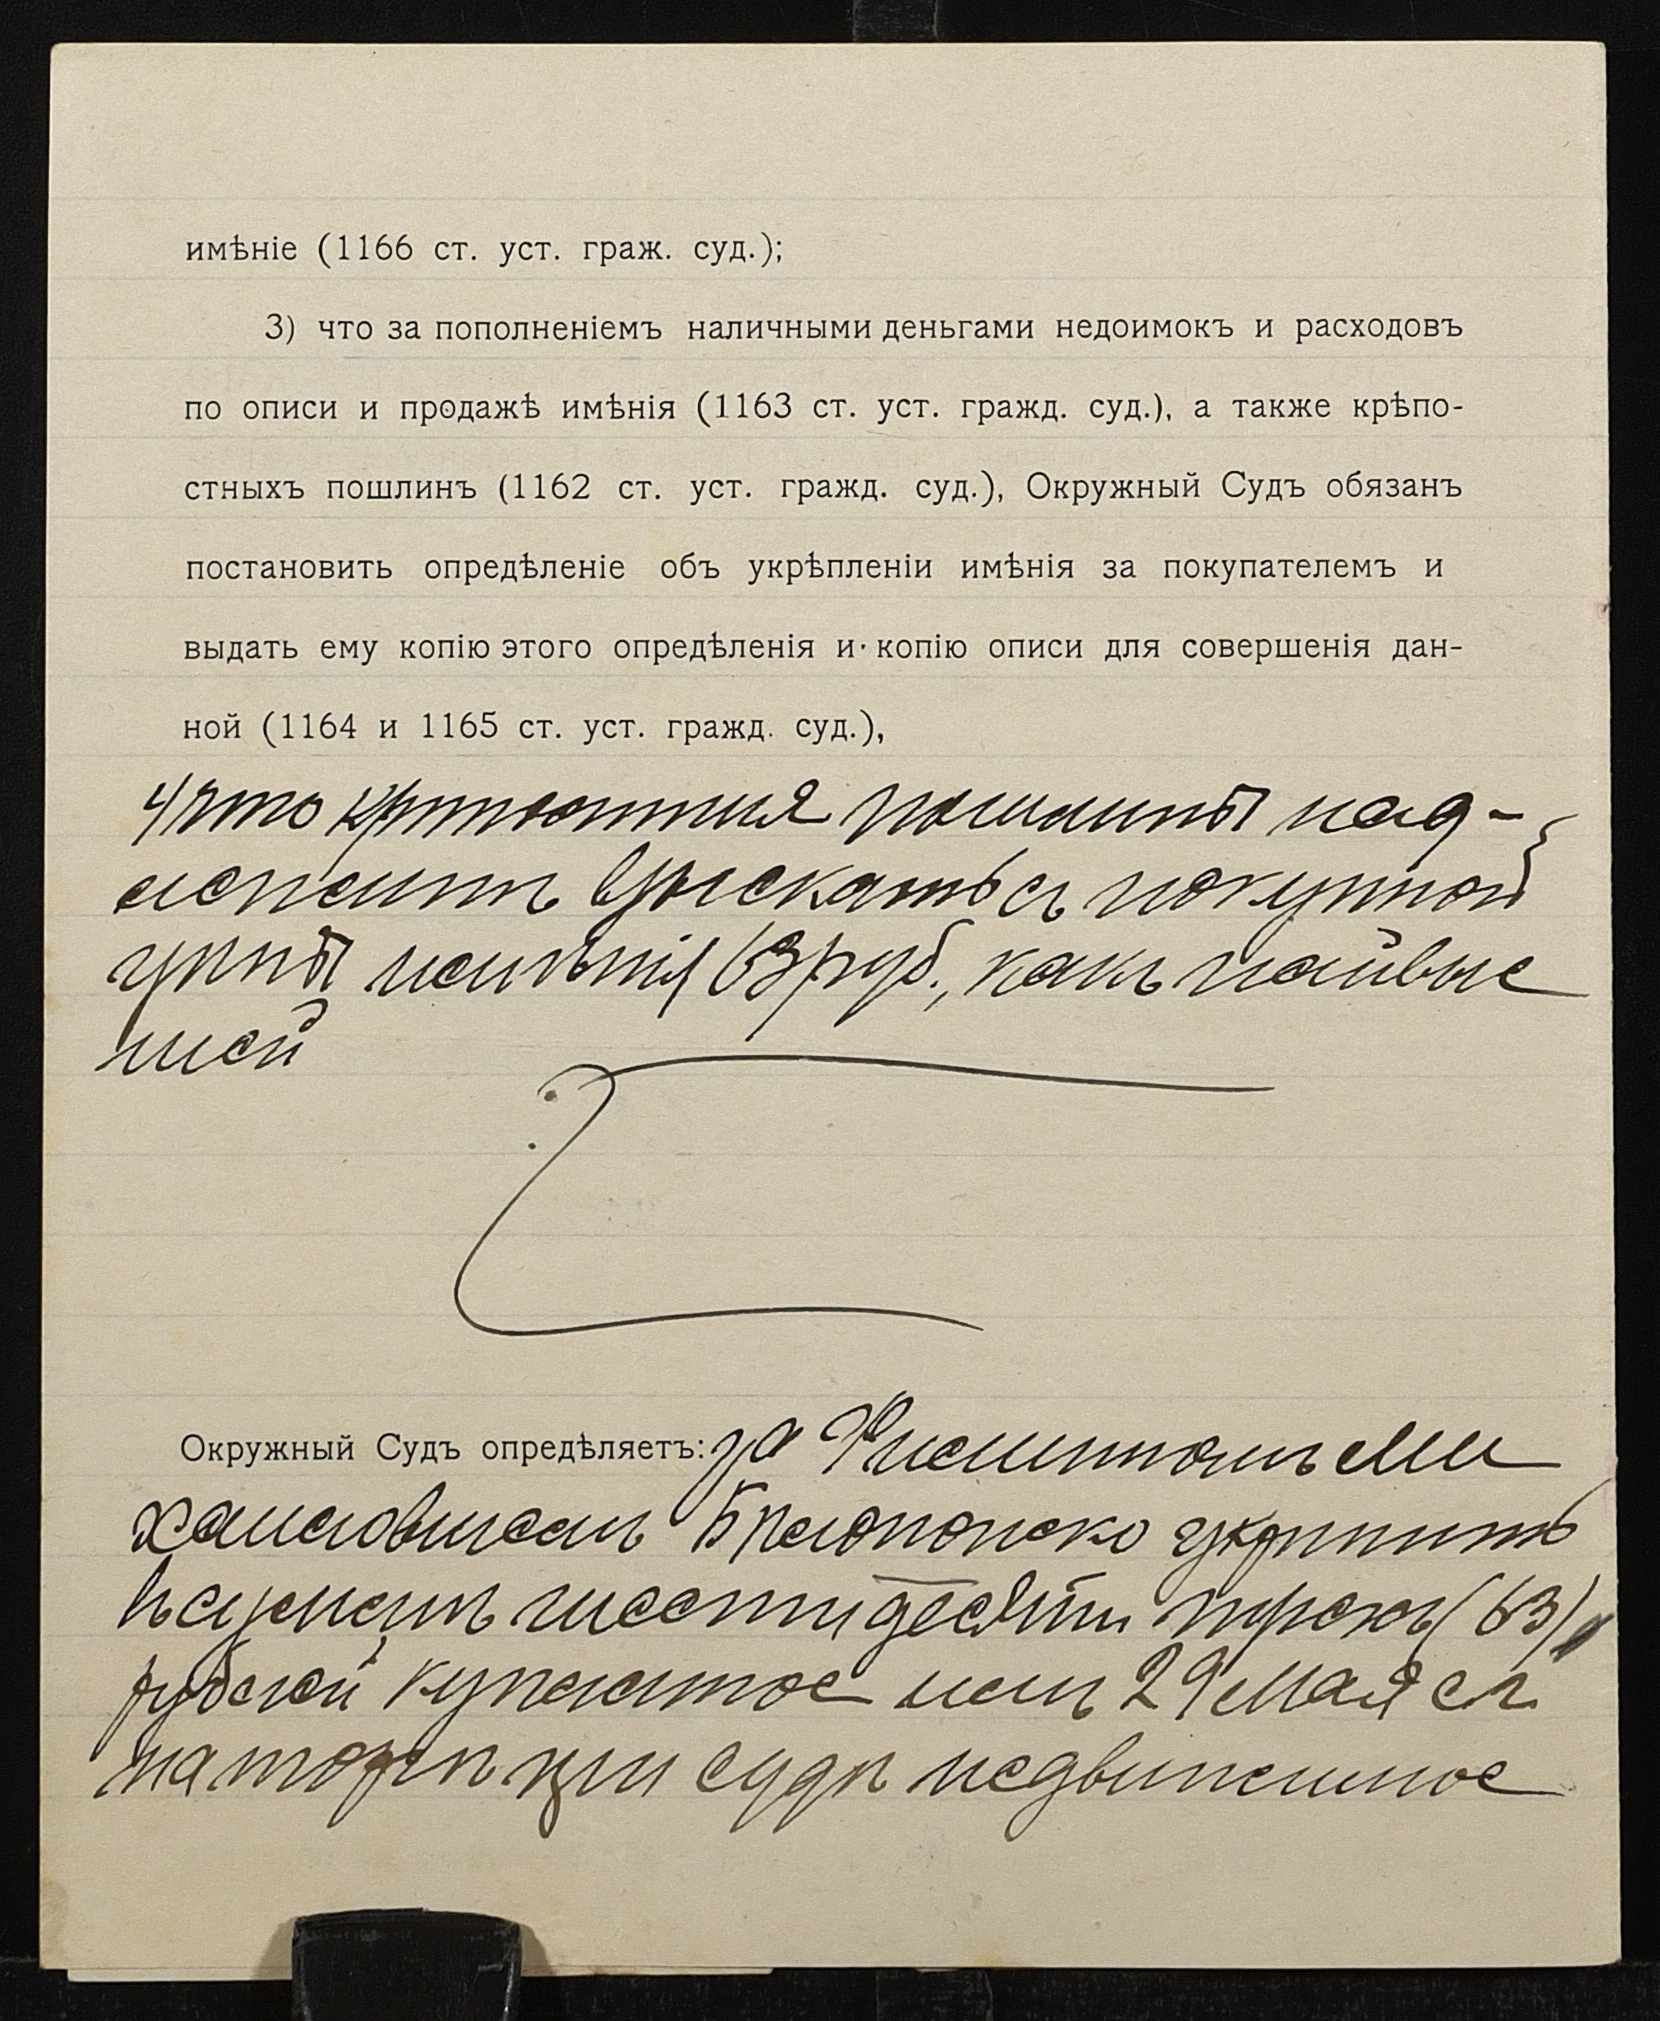 имѣніе (1166 ст. уст. граж. суд.);
3) что за пополненіемъ наличными деньгами недоимокъ и расходовъ
по описи и продажѣ имѣнія (1163 ст. уст. гражд. суд.), а также крѣпо-
стныхъ пошлинъ (1162 ст. уст. гражд. суд.), Окружный Судъ обязанъ
постановить опредѣленіе объ укрѣпленіи имѣнія за покупателемъ и
выдать ему копію этого опредѣленія и копію описи для совершенія дан-
ной (1164 и 1165 ст. уст. гражд. суд.),
4/ что крѣпостныя пошлины над-
лежитъ взыскать съ покупной
цѣны имѣнія 63 руб., какъ найвыс
шей
Окружный Судъ опредѣляетъ: за Ми
хаиловичемъ укрѣпить
въ суммѣ шестидесяти трехъ (63)
рублей купленное имъ 29 мая с. г.
на торгѣ при судѣ недвижимое